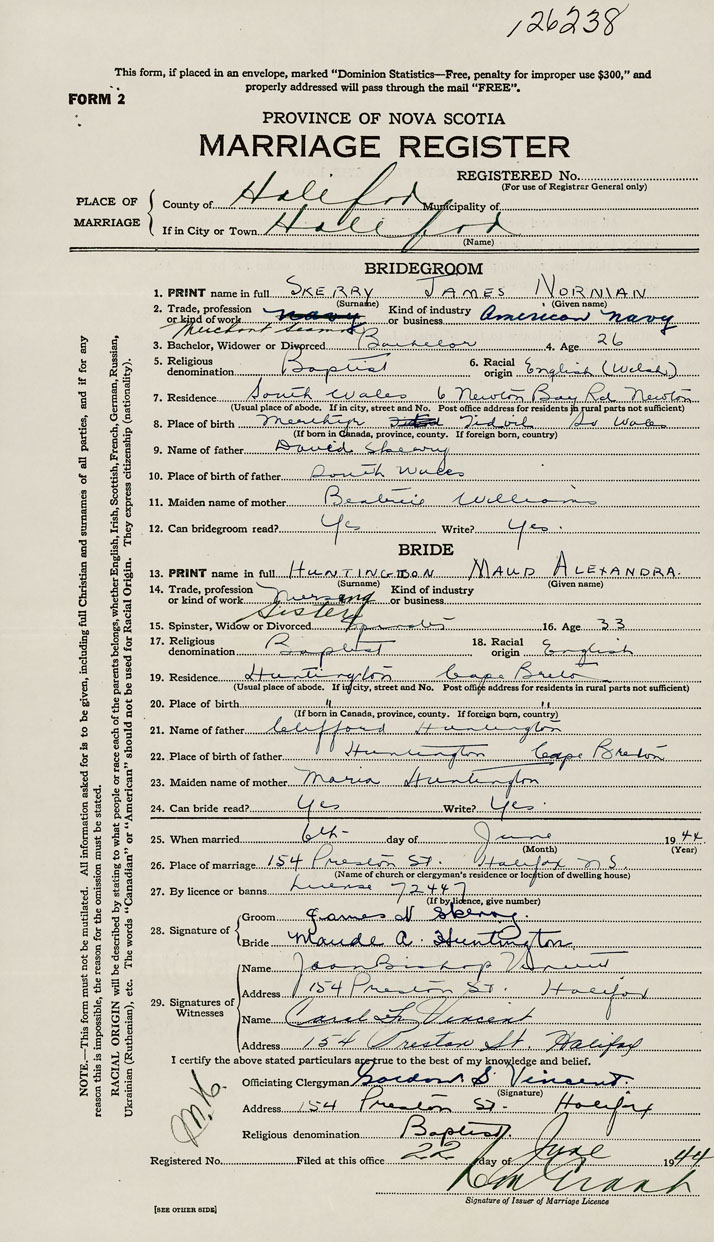 126238
This form, if placed in an envelope, marked "Dominion Statistics—Free, penalty for improper use $300," and
properly addressed will pass through the mail "FREE".
FORM 2
PROVINCE OF NOVA SCOTIA
MARRIAGE REGISTER
REGISTERED No.
(For use of Registrar General only)
PLACE OF MARRIAGE
County of Halifax Municipality of
If in City or Town Halifax
(Name)
BRIDEGROOM
1. PRINT name in full SKERRY JAMES NORMAN
(Surname) (Given name)
2. Trade, profession or kind of work navy Merchant Seaman Kind of industry or business American navy
3. Bachelor, Widower or Divorced Bachelor 4. Age 26
5. Religious denomination Baptist 6. Racial origin English (Welsh)
7. Residence South Wales 6 Newton Bay Rd Newton
(Usual place of abode. If in city, street and No. Post office address for residents in rural parts not sufficient)
8. Place of birth Merthyr Tydvil So Wales
(If born in Canada, province, county. If foreign born, country)
9. Name of father David Skerry
10. Place of birth of father South Wales
11. Maiden name of mother Beatrice Williams
12. Can bridegroom read? Yes Write? Yes.
BRIDE
13. PRINT name in full HUNTINGTON MAUD ALEXANDRA.
(Surname) (Given name)
14. Trade, profession or kind of work Nursing Sister Kind of industry or business
15. Spinster, Widow or Divorced Spinster 16. Age 33
17. Religious denomination Baptist 18. Racial origin English
19. Residence Huntington Cape Breton
(Usual place of abode. If in city, street and No. Post office address for residents in rural parts not sufficient)
20. Place of birth " "
(If born in Canada, province, county. If foreign born, country)
21. Name of father Clifford Huntington
22. Place of birth of father Huntington Cape Breton
23. Maiden name of mother Maria Huntington
24. Can bride read? Yes Write? Yes.
25. When married 6th day of June 1944
(Month) (Year)
26. Place of marriage 154 Preston St. Halifax N.S.
(Name of church or clergyman's residence or location of dwelling house)
27. By licence or banns License 72447
(If by licence, give number)
28. Signature of
Groom James N Skerry.
Bride Maude A. Huntington
29. Signatures of Witnesses
Name Joan Bishop Vincent
Address 154 Preston St. Halifax
Name Carol Vincent
Address 154 Preston St Halifax
I certify the above stated particulars are true to the best of my knowledge and belief.
Officiating Clergyman Gordon S. Vincent.
(Signature)
Address 154 Preston St. Halifax
Religious denomination Baptist.
Registered No. Filed at this office 22 day of June 1944
Signature of Issuer of Marriage Licence
[SEE OTHER SIDE]
M.K.
NOTE.—This form must not be mutilated. All information asked for is to be given, including full Christian and surnames of all parties, and if for any
reason this is impossible, the reason for the omission must be stated.
RACIAL ORIGIN will be described by stating to what people or race each of the parents belongs, whether English, Irish, Scottish, French, German, Russian,
Ukrainian (Ruthenian), etc. The words "Canadian" or "American" should not be used for Racial Origin. They express citizenship (nationality).